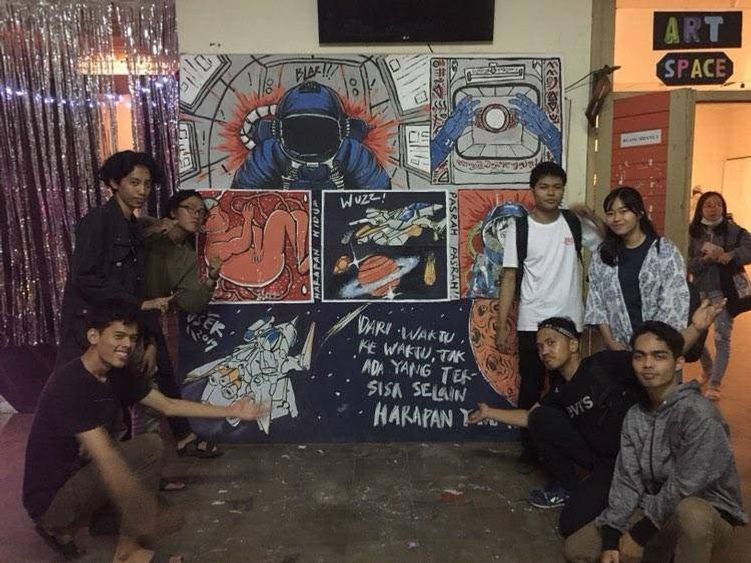 ART
SPACE
BLAR!!!
WUZZ!
HARAPAN HIDUP
PASRAH PASRAH!
DARI WAKTU
KE WAKTU, TAK
ADA YANG TER-
SISA SELAIN
HARAPAN